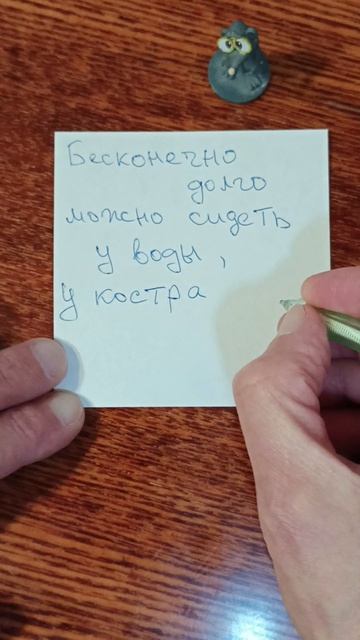 Бесконечно
долго
можно сидеть
у воды,
у костра